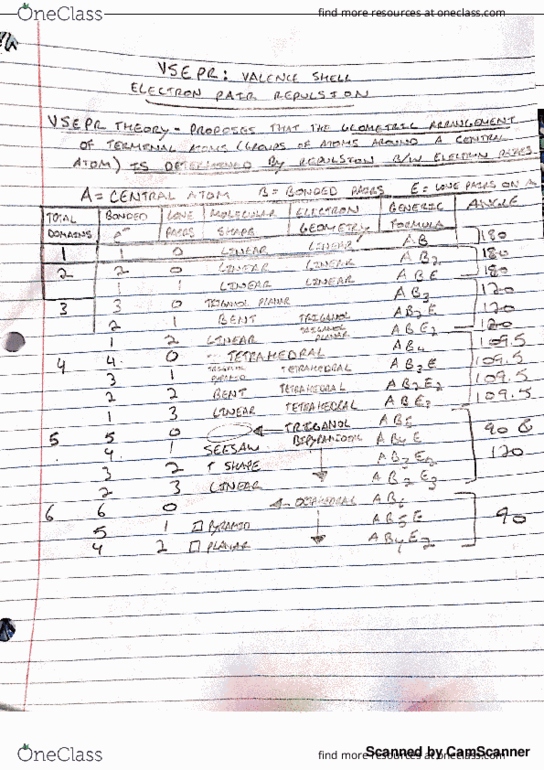 OneClass find more resources at oneclass.com
VSEPR: VALENCE SHELL
ELECTRON PAIR REPULSION
VSEPR THEORY - PROPOSES THAT THE GEOMETRIC ARRANGEMENT
OF TERMINAL ATOMS (GROUPS OF ATOMS AROUND A CENTRAL
ATOM) IS DETERMINED BY REPULSION B/W ELECTRON PAIRS.
A = CENTRAL ATOM B = BONDED PAIRS E = LONE PAIRS ON A
TOTAL DOMAINS BONDED e⁻ LONE PAIRS MOLECULAR SHAPE ELECTRON GEOMETRY GENERIC FORMULA ANGLE
1 1 0 LINEAR LINEAR AB 180
2 2 0 LINEAR LINEAR AB2 180
1 1 LINEAR LINEAR ABE 180
3 3 0 TRIGONAL PLANAR AB3 120
2 1 BENT TRIGONAL PLANAR AB2E 120
1 2 LINEAR ABE2 120
4 4 0 TETRAHEDRAL AB4 109.5
3 1 TETRAHEDRAL AB3E 109.5
2 2 BENT TETRAHEDRAL AB2E2 109.5
1 3 LINEAR TETRAHEDRAL ABE3 109.5
5 5 0 ← TRIGONAL BIPYRAMIDAL AB5 90 &
4 1 SEESAW AB4E 120
3 2 T SHAPE AB3E2
2 3 LINEAR AB2E3
6 6 0 ← OCTAHEDRAL AB6
5 1 □ PYRAMID AB5E 90
4 2 □ PLANAR AB4E2
OneClass find more resources at oneclass.com
Scanned by CamScanner